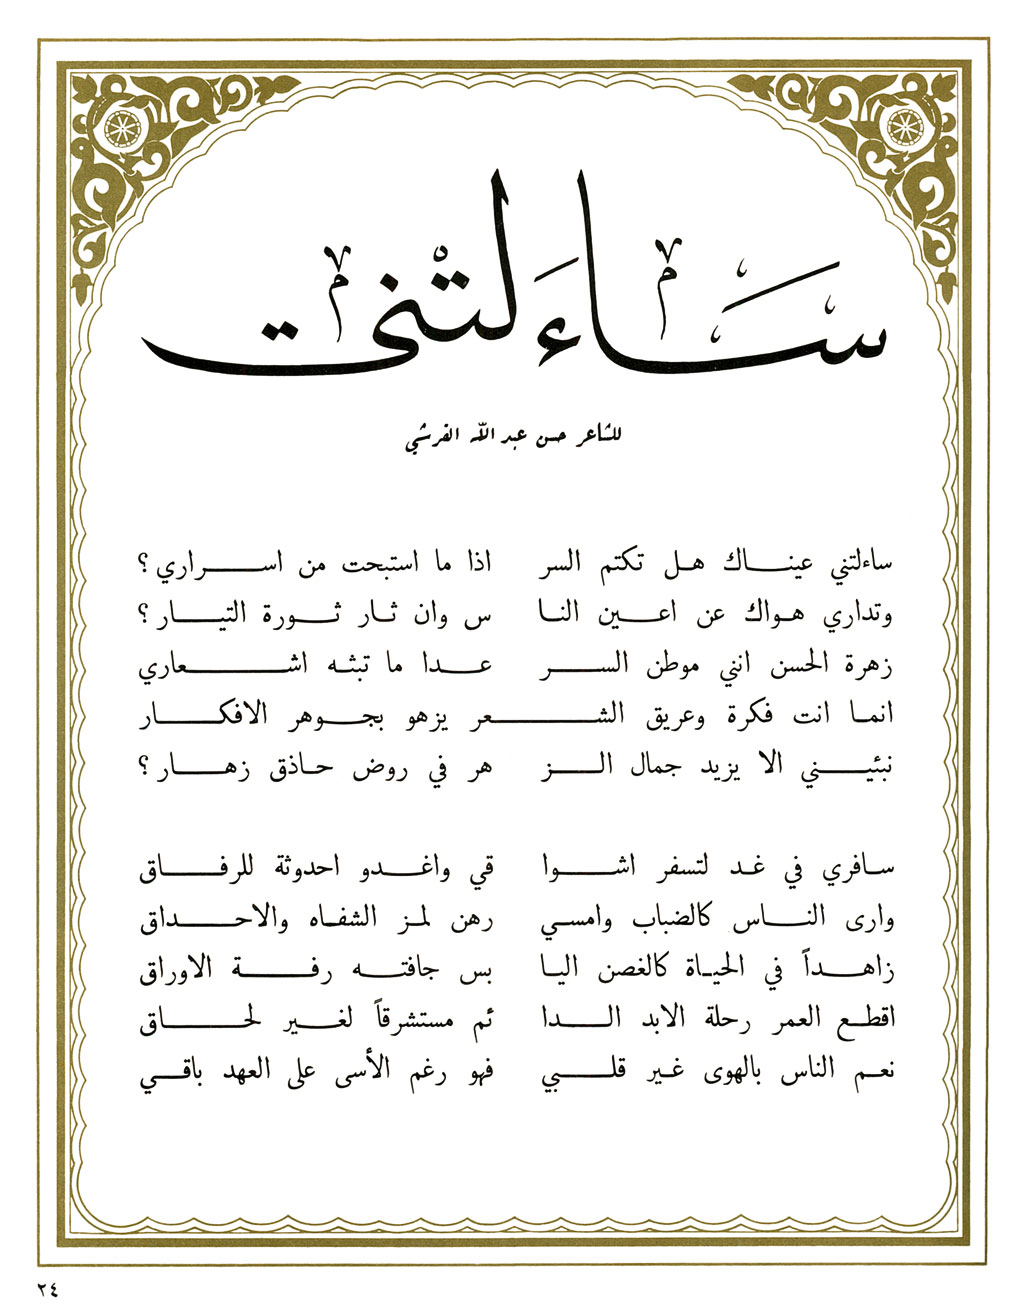 ساءلتني
للشاعر حسن عبد الله القرشي
ساءلتني عيناك هل تكتم السر اذا ما استبحت من اسراري ؟
وتداري هواك عن اعين النا س وان ثار ثورة التيار ؟
زهرة الحسن انني موطن السر عدا ما تبثه اشعاري
انما انت فكرة وعريق الشعر يزهو بجوهر الافكار
نبئيني الا يزيد جمال الز هر في روض حاذق زهار ؟
سافري في غد لتسفر اشوا قي واغدو احدوثة للرفاق
وارى الناس كالضباب وامسي رهن لمز الشفاه والاحداق
زاهداً في الحياة كالغصن اليا بس جافته رفة الاوراق
اقطع العمر رحلة الابد الدا ئم مستشرقاً لغير لحاق
نعم الناس بالهوى غير قلبي فهو رغم الأسى على العهد باقي
٢٤